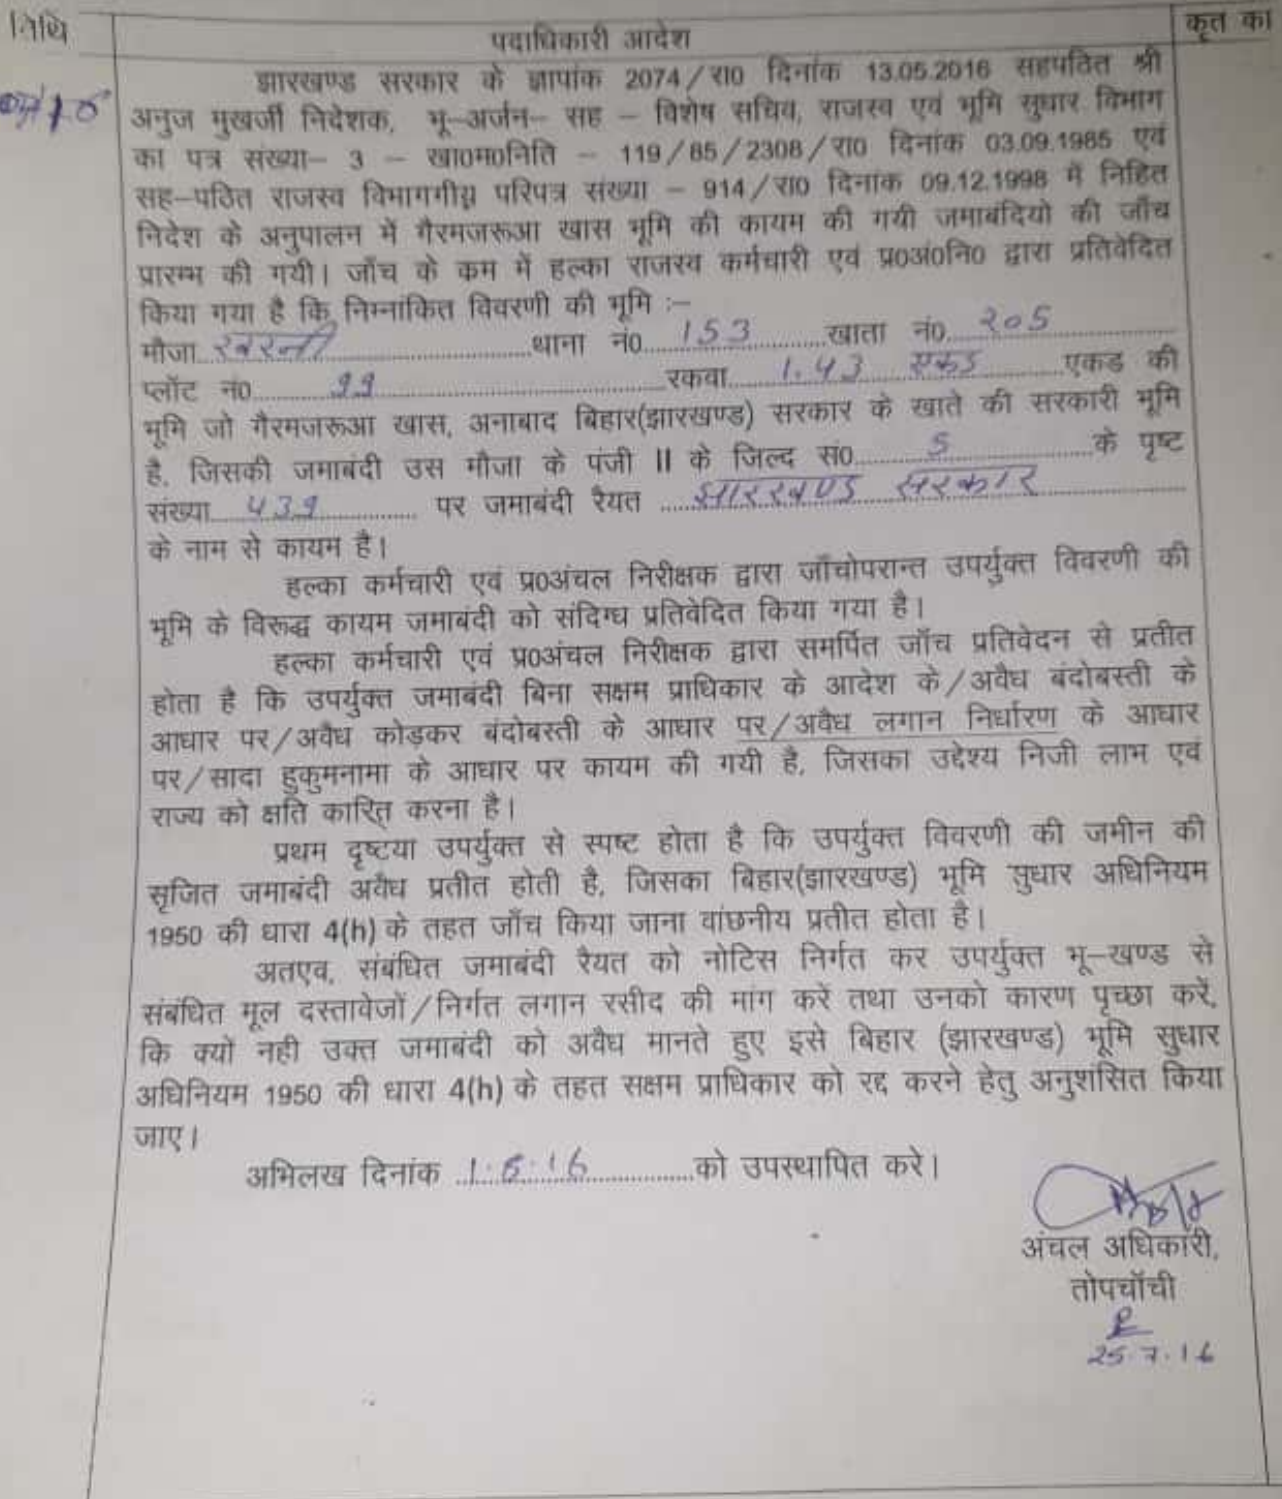 तिथि पदाधिकारी आदेश कृत का
झारखण्ड सरकार के ज्ञापांक 2074/रा0 दिनांक 13.05.2016 सहपठित श्री
अनुज मुखर्जी निदेशक, भू–अर्जन– सह – विशेष सचिव, राजस्व एवं भूमि सुधार विभाग
का पत्र संख्या– 3 – खा0म0निति – 119/85/2308/रा0 दिनांक 03.09.1985 एवं
सह–पठित राजस्व विभागगीय परिपत्र संख्या – 914/रा0 दिनांक 09.12.1998 में निहित
निदेश के अनुपालन में गैरमजरूआ खास भूमि की कायम की गयी जमाबंदियो की जाँच
प्रारम्भ की गयी। जाँच के कम में हल्का राजस्व कर्मचारी एवं प्र0अं0नि0 द्वारा प्रतिवेदित
किया गया है कि निम्नांकित विवरणी की भूमि :–
मौजा थाना नं0 153 खाता नं0 205
प्लॉट नं0 99 रकवा 1.43 एकड एकड की
भूमि जो गैरमजरूआ खास, अनाबाद बिहार(झारखण्ड) सरकार के खाते की सरकारी भूमि
है, जिसकी जमाबंदी उस मौजा के पंजी II के जिल्द सं0 5 के पृष्ट
संख्या 439 पर जमाबंदी रैयत झारखण्ड सरकार
के नाम से कायम है।
हल्का कर्मचारी एवं प्र0अंचल निरीक्षक द्वारा जाँचोपरान्त उपर्युक्त विवरणी की
भूमि के विरूद्ध कायम जमाबंदी को संदिग्ध प्रतिवेदित किया गया है।
हल्का कर्मचारी एवं प्र0अंचल निरीक्षक द्वारा समर्पित जाँच प्रतिवेदन से प्रतीत
होता है कि उपर्युक्त जमाबंदी बिना सक्षम प्राधिकार के आदेश के/अवैध बंदोबस्ती के
आधार पर/अवैध कोड़कर बंदोबस्ती के आधार पर/अवैध लगान निर्धारण के आधार
पर/सादा हुकुमनामा के आधार पर कायम की गयी है, जिसका उद्देश्य निजी लाभ एवं
राज्य को क्षति कारित् करना है।
प्रथम दृष्टया उपर्युक्त से स्पष्ट होता है कि उपर्युक्त विवरणी की जमीन की
सृजित जमाबंदी अवैध प्रतीत होती है, जिसका बिहार(झारखण्ड) भूमि सुधार अधिनियम
1950 की धारा 4(h) के तहत जाँच किया जाना वांछनीय प्रतीत होता है।
अतएव, संबंधित जमाबंदी रैयत को नोटिस निर्गत कर उपर्युक्त भू–खण्ड से
संबंधित मूल दस्तावेजों/निर्गत लगान रसीद की मांग करें तथा उनको कारण पृच्छा करें,
कि क्यों नही उक्त जमाबंदी को अवैध मानते हुए इसे बिहार (झारखण्ड) भूमि सुधार
अधिनियम 1950 की धारा 4(h) के तहत सक्षम प्राधिकार को रद्द करने हेतु अनुशंसित किया
जाए।
अभिलख दिनांक 1.8.16 को उपस्थापित करे।
अंचल अधिकारी,
तोपचाँची
25.7.16